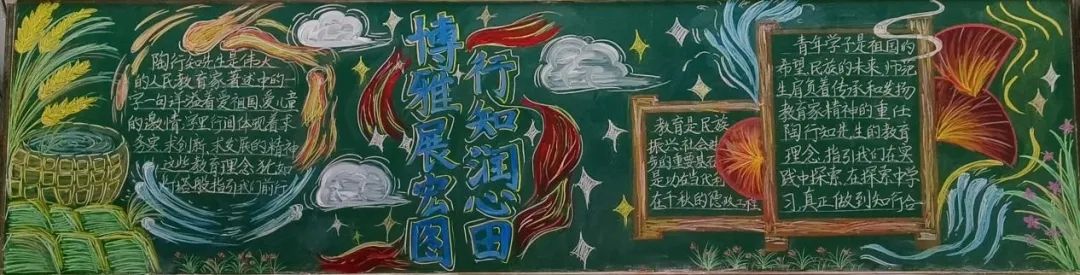 陶行知先生是伟大
的人民教育家著述中的一
字一句洋溢着爱祖国,爱儿童
的激情,字里行间体现着求
务实,求创新,求发展的精神
这些教育理念,犹如
灯塔般指引我们前行
行知润心田
博雅展宏图
教育是民族
振兴,社会进
步的重要基石
是功在当代利
在千秋的德政工程
青年学子是祖国的
希望,民族的未来,师范
生肩负着传承和发扬
教育家精神的重任
陶行知先生的教育
理念,指引我们在实
践中探索,在探索中学
习,真正做到知行合一